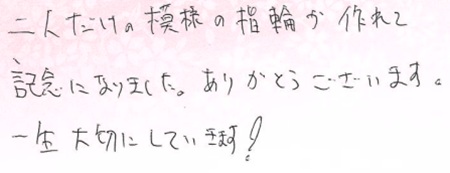 二人だけの模様の指輪が作れて
記念になりました。ありがとうございます。
一生大切にしていきます!